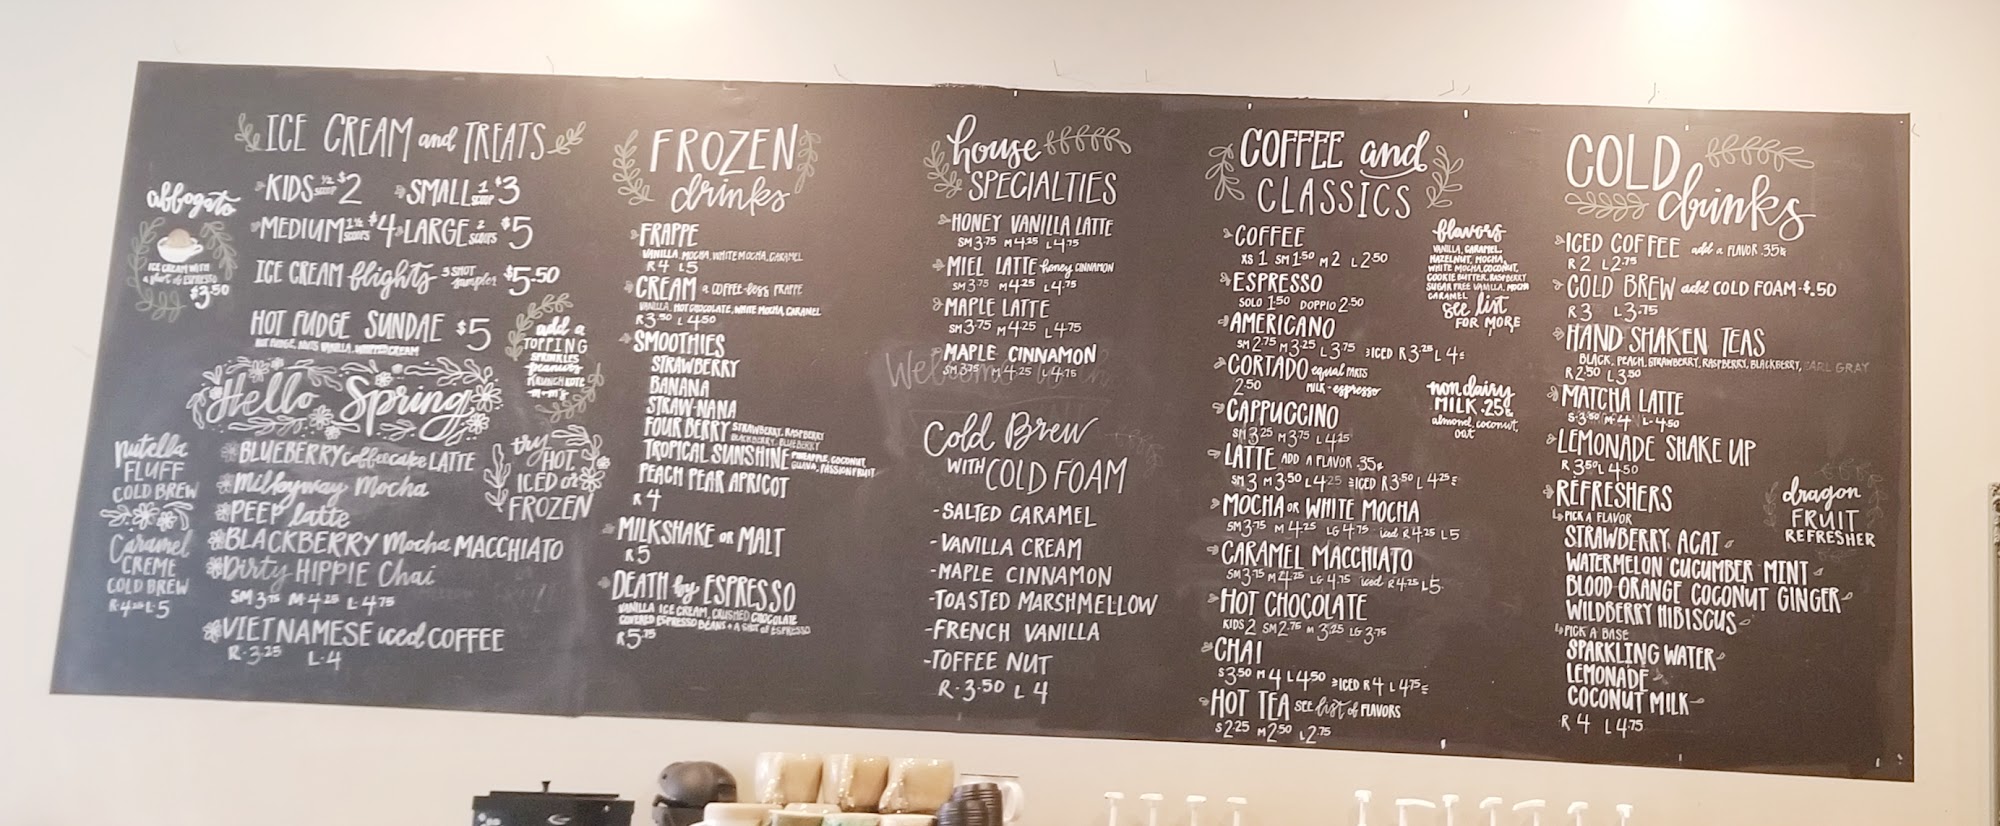 ICE CREAM and TREATS
KIDS 1/2 SCOOP $2
SMALL 1 SCOOP $3
MEDIUM 1 1/2 SCOOPS $4
LARGE 2 SCOOPS $5
ICE CREAM flights 3 SHOT sampler $5.50
HOT FUDGE SUNDAE $5
HOT FUDGE, NUTS VANILLA, WHIPPED CREAM
affogato
ICE CREAM WITH
a shot of ESPRESSO
$3.50
add a
TOPPING
SPRINKLES
peanuts
KRUNCH KOTE
m+m's
Hello Spring
BLUEBERRY coffeecake LATTE
Milkyway Mocha
PEEP latte
BLACKBERRY Mocha MACCHIATO
Dirty HIPPIE Chai
SM 3.75 M 4.25 L 4.75
VIETNAMESE iced COFFEE
R 3.25 L 4
try
HOT,
ICED or
FROZEN
nutella
FLUFF
COLD BREW
Caramel
CREME
COLD BREW
R 4.25 L 5
FROZEN
drinks
FRAPPE
VANILLA, MOCHA, WHITE MOCHA, CARAMEL
R 4 L 5
CREAM a COFFEE-less FRAPPE
VANILLA, HOT CHOCOLATE, WHITE MOCHA, CARAMEL
R 3.50 L 4.50
SMOOTHIES
STRAWBERRY
BANANA
STRAW-NANA
FOUR BERRY STRAWBERRY, RASPBERRY
BLACKBERRY, BLUEBERRY
TROPICAL SUNSHINE PINEAPPLE, COCONUT,
GUAVA, PASSIONFRUIT
PEACH PEAR APRICOT
R 4
MILKSHAKE or MALT
R 5
DEATH by ESPRESSO
VANILLA ICE CREAM, CRUSHED CHOCOLATE
COVERED ESPRESSO BEANS + A SHOT of ESPRESSO
R 5.75
house
SPECIALTIES
HONEY VANILLA LATTE
SM 3.75 M 4.25 L 4.75
MIEL LATTE honey CINNAMON
SM 3.75 M 4.25 L 4.75
MAPLE LATTE
SM 3.75 M 4.25 L 4.75
MAPLE CINNAMON
SM 3.75 M 4.25 L 4.75
Cold Brew
WITH COLD FOAM
-SALTED CARAMEL
-VANILLA CREAM
-MAPLE CINNAMON
-TOASTED MARSHMELLOW
-FRENCH VANILLA
-TOFFEE NUT
R 3.50 L 4
COFFEE and
CLASSICS
COFFEE
XS 1 SM 1.50 M 2 L 2.50
ESPRESSO
SOLO 1.50 DOPPIO 2.50
AMERICANO
SM 2.75 M 3.25 L 3.75 ICED R 3.25 L 4
CORTADO equal PARTS
2.50 MILK + espresso
CAPPUCCINO
SM 3.25 M 3.75 L 4.25
LATTE ADD A FLAVOR .35¢
SM 3 M 3.50 L 4.25 ICED R 3.50 L 4.25
MOCHA or WHITE MOCHA
SM 3.75 M 4.25 LG 4.75 iced R 4.25 L 5
CARAMEL MACCHIATO
SM 3.75 M 4.25 LG 4.75 iced R 4.25 L 5
HOT CHOCOLATE
KIDS 2 SM 2.75 M 3.25 LG 3.75
CHAI
S 3.50 M 4 L 4.50 ICED R 4 L 4.75
HOT TEA SEE list of FLAVORS
S 2.25 M 2.50 L 2.75
flavors
VANILLA, CARAMEL,
HAZELNUT, MOCHA,
WHITE MOCHA, COCONUT,
COOKIE BUTTER, RASPBERRY
SUGAR FREE VANILLA, MOCHA
CARAMEL
See list
FOR MORE
non dairy
MILK .25¢
almond, coconut,
oat
COLD
drinks
ICED COFFEE add a FLAVOR .35¢
R 2 L 2.75
COLD BREW add COLD FOAM - $.50
R 3 L 3.75
HAND SHAKEN TEAS
BLACK, PEACH, STRAWBERRY, RASPBERRY, BLACKBERRY, EARL GRAY
R 2.50 L 3.50
MATCHA LATTE
S 3.50 M 4 L 4.50
LEMONADE SHAKE UP
R 3.50 L 4.50
REFRESHERS
PICK A FLAVOR
STRAWBERRY ACAI
WATERMELON CUCUMBER MINT
BLOOD ORANGE COCONUT GINGER
WILDBERRY HIBISCUS
PICK A BASE
SPARKLING WATER
LEMONADE
COCONUT MILK
R 4 L 4.75
dragon
FRUIT
REFRESHER